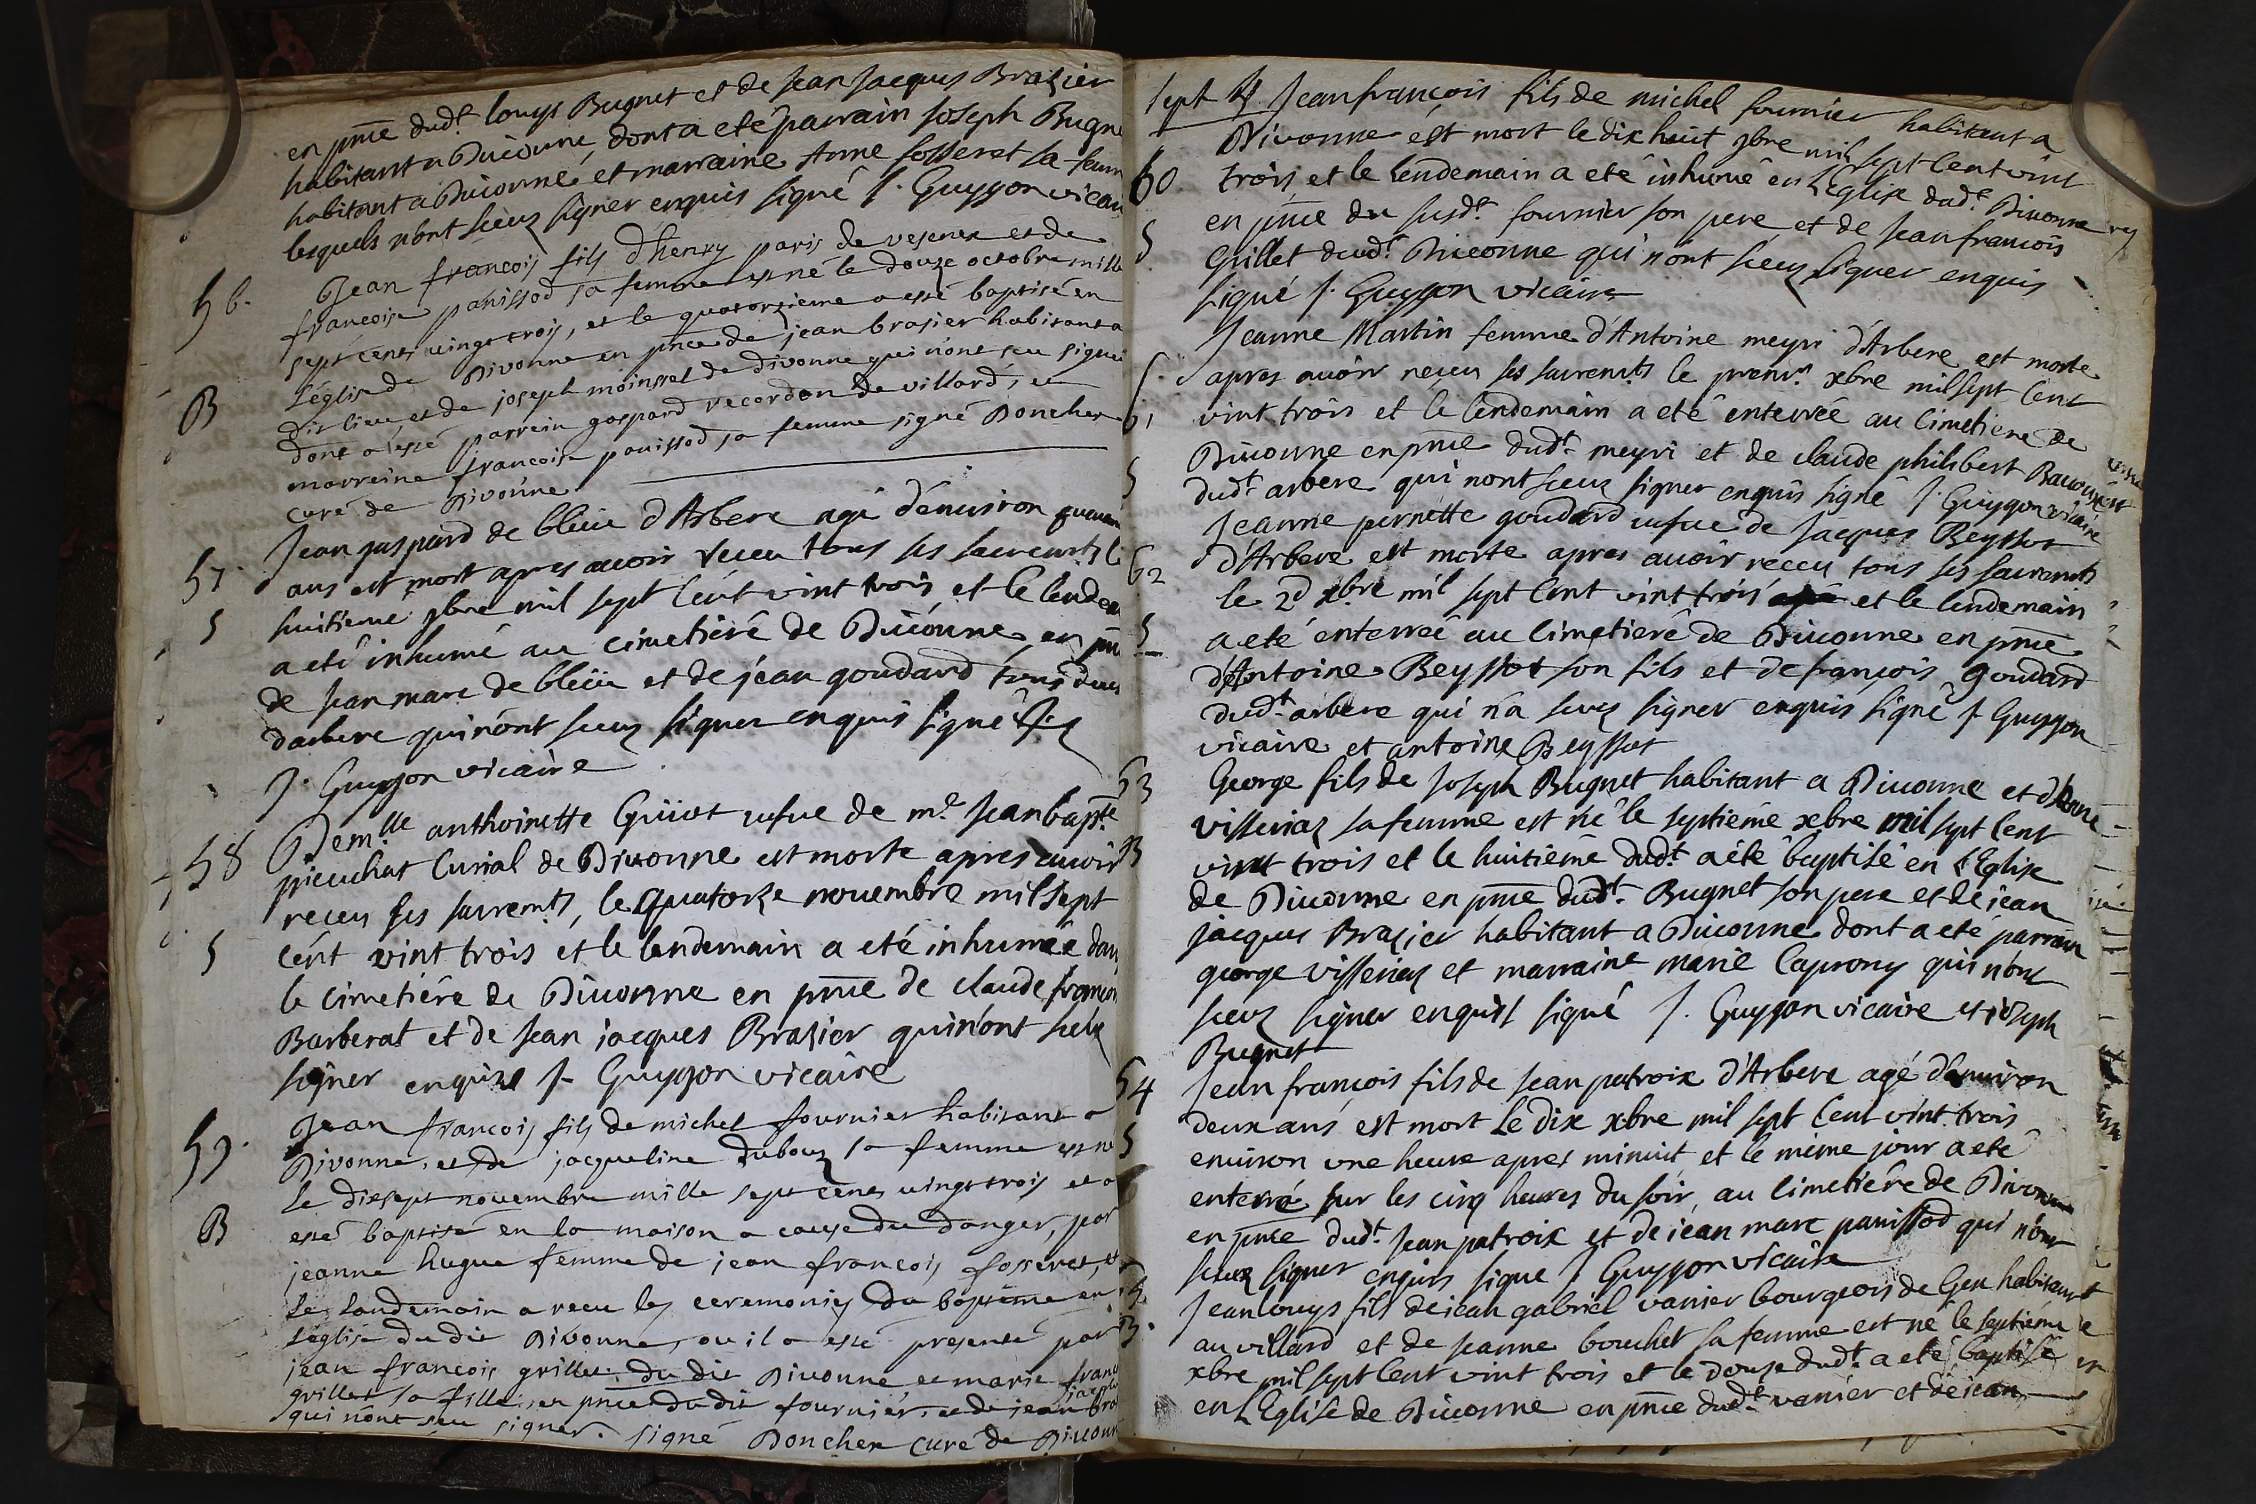 en pnce dudt. louys Bugnet et de Jean Jacques Brazier
habitant a Divonne, dont a eté parrain Joseph Bugne
habitant a Divonne et marraine Anne fosseret sa fem
lesquels n'ont sceuz signer enquis signé J. Guygon vicai
56.
Jean francois fils d'henry paris de vesenex et de
francoise panissod sa femme est né le douze octobre mille
sept cents vingt trois, et le quatorzieme a esté baptisé en
L'église de Divonne en pnce de jean brasier habitant a
dit lieu, et de joseph moinssel de divonne qui n'ont sceu signer
B
dont a esté parrein gaspard recordon de villard, et
marreine francoise panissod sa femme signé Doncher
curé de Divonne.
57.
Jean gaspard de bleüe d'Arbere agé d'environ
ans est mort apres avoir receu tous ses sacremts le
5
huitieme 9bre mil sept cent vint trois et le lende
a eté inhumé au cimetiere de Divonne en pn
de Jean marc de bleüe et de jean goudard tous deux
d'arbere qui n'ont sceuz signer enquis signé
J. Guygon vicaire
58
Demlle anthoinette Guiot vefve de me. Jean bapte
picuchat Curial de Divonne est morte apres avoir
receu ses sacremts, le quatorze novembre mil sept
5
cént vint trois et le lendemain a eté inhumée dans
le cimetiére de Divonne en pnce de claude francoi
Barberat et de Jean jacques Brazier qui n'ont sceuz
signer enquis J. Guygon vicaire
59.
Jean francois fils de michel fournier habitant a
Divonne, et de jacqueline dubouz sa femme est né
Le diesept novembre mille sept cents vingt trois et a
B
esté baptisé en la maison a cause du danger, par
jeanne hugue femme de jean francois fosseret, et
Le Landemain a receu les ceremonies du baptême en
L'église du dit Divonne, ou il a esté presenté par
jean francois grillet du dit Divonne et marie franc
grillet sa fille, en pnce du dit fournier, et de jean jacque bra
qui n'ont sceu signer. signé Doncher curé de Divonne
Jean francois fils de michel fournier habitant a
Divonne est mort le dix huit 9bre mil sept cent vint
60.
trois, et le lendemain a eté inhumé en L'Eglise dudt. Divonne
en pnce du susdt. fournier son pere et de Jean francois
5
Grillet dudt. Divonne qui n'ont sceuz signer enquis
signé J. Guygon vicaire
Jeanne Martin femme d'Antoine meyri d'Arbere est morte
apres avoir receu ses sacremts le premr. xbre mil sept cent
61
vint trois et le lendemain a eté enterrée au cimetiere de
Divonne en pnce dudt. meyri et de claude philibert
5
dudt. arbere qui n'ont sceuz signer enquis signé J. Guygon vicaire
Jeanne pernette goudard vefve de Jacques Beyssot
62
d'Arbere est morte apres avoir receu tous ses sacremts
le 2d xbre mil sept cent vint trois et le lendemain
5
a eté enterreé au cimetiere de Divonne en pnce
d'Antoine Beyssot son fils et de francois goudard
dudt. arbere qui n'a sceuz signer enquis signé J. Guygon
vicaire et antoine Beyssot
63
George fils de Joseph Bugnet habitant a Divonne et
visseriaz sa femme est né le septiéme xbre mil sept cent
B
vint trois et le huitiéme dudt. a été baptisé en L'Eglise
de Divonne en pnce dudt. Bugnet son pere et de jean
jacques Brazier habitant a Divonne dont a eté parrain
george visseriaz et marraine marie Caprony qui n'ont
sceuz signer enquis signé J. Guygon vicaire et joseph
Bugnet
64
Jean francois fils de Jean patroix d'Arbere agé d'environ
deux ans est mort Le dix xbre mil sept cent vint trois
5
environ une heure apres minuit et le même jour a eté
enterré sur les cinq heures du soir, au cimetiére de Divonne
en pnce dudt. Jean patroix et de jean marc panissod qui n'ont
sceuz signer enquis signe J Guygon vicaire
Jean louys fils de jean gabriel vanier bourgeois de Gex habitant
B.
au villard et de Jeanne bouchet sa femme est né le septiéme
xbre mil sept cent vint trois et le douze dudt. a eté baptisé
en L'Eglise de Divonne en pnce dudt. vanier et de jean